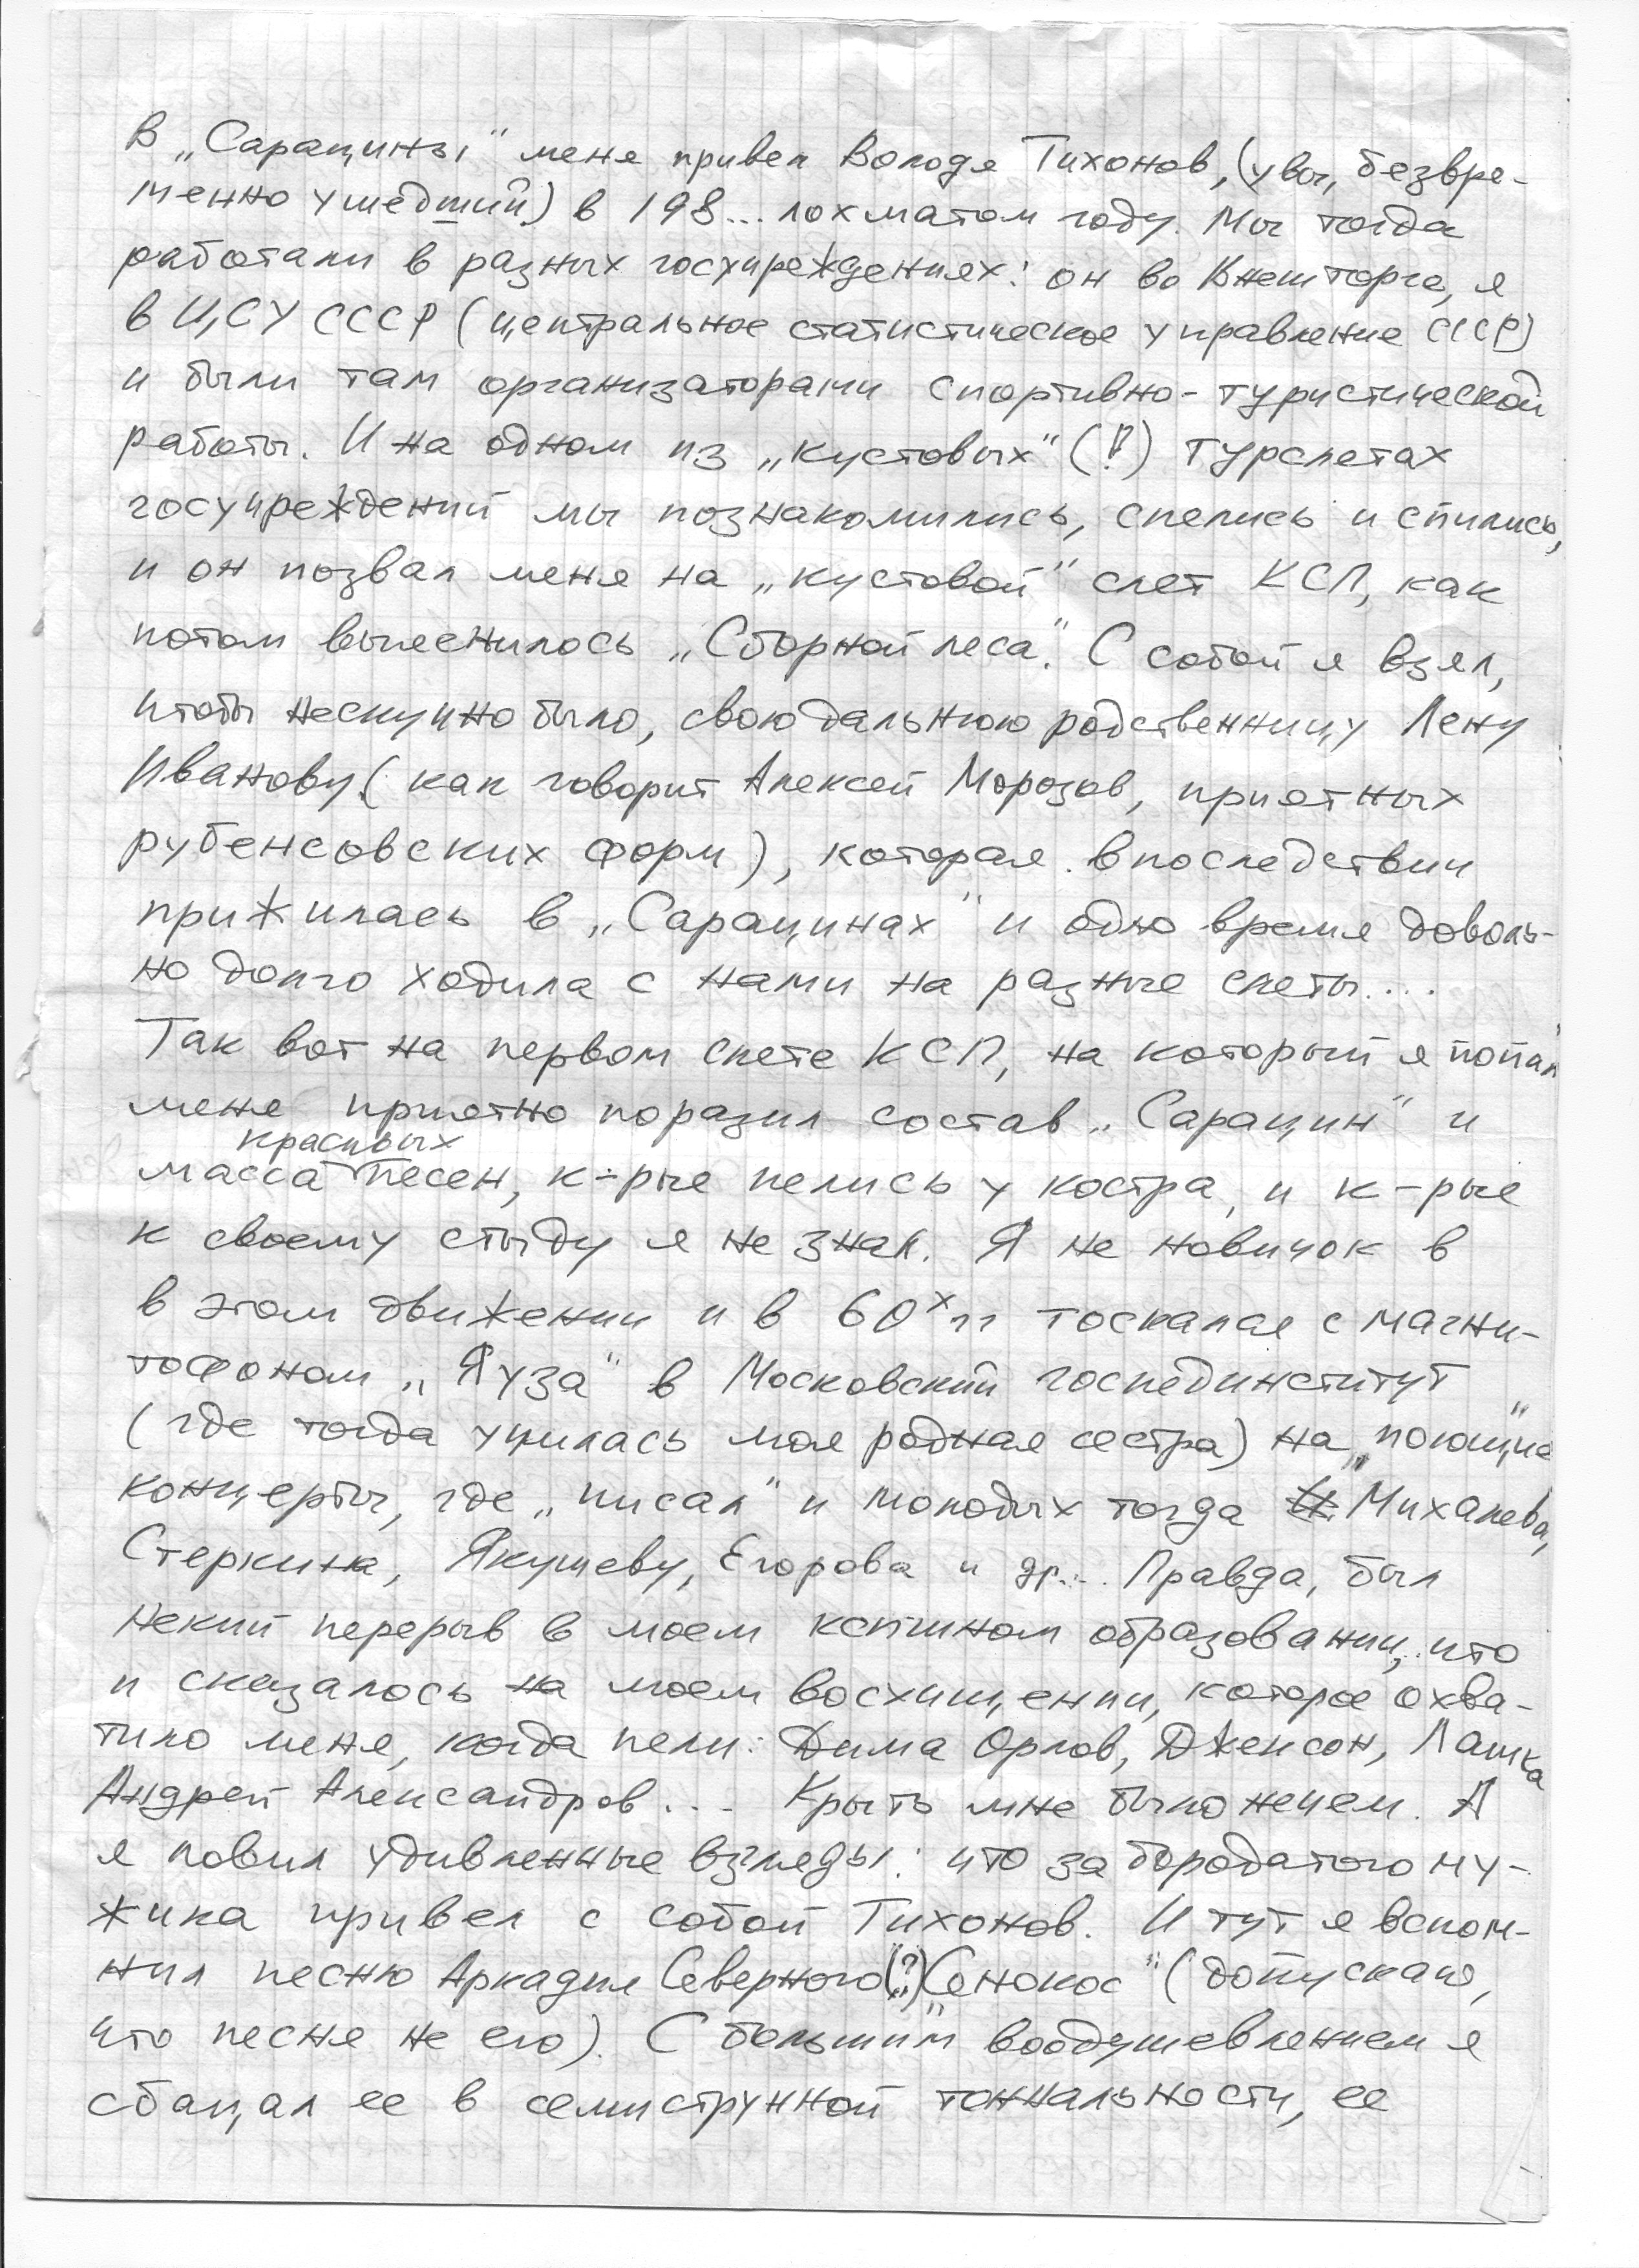 В „Сарацины" меня привел Володя Тихонов, (увы, безвре-
менно ушедший) в 198... лохматом году. Мы тогда
работали в разных госучреждениях: он во Внешторге, я
в ЦСУ СССР (центральное статистическое управление СССР)
и были там организаторами спортивно-туристической
работы. И на одном из „кустовых" (!?) турслетах
госучреждений мы познакомились, спелись и спились,
и он позвал меня на „кустовой" слет КСП, как
потом выяснилось „Сборной леса". С собой я взял,
чтобы нескучно было, свою дальнюю родственницу Лену
Иванову (как говорит Алексей Морозов, приятных
рубенсовских форм), которая впоследствии
прижилась в „Сарацинах" и одно время доволь-
но долго ходила с нами на разные слеты....
Так вот на первом слете КСП, на который я попал
меня приятно поразил состав „Сарацин" и
красивых
масса песен, к-рые пелись у костра, и к-рые
к своему стыду я не знал. Я не новичок в
в этом движении и в 60х гг таскался с магни-
тофоном „Яуза" в Московский госпединститут
(где тогда училась моя родная сестра) на „поющие"
концерты, где „писал" и молодых тогда Михалева,
Стеркина, Якушеву, Егорова и др... Правда, был
некий перерыв в моем кспшном образовании, что
и сказалось на моем восхищении, которое охва-
тило меня, когда пели: Дима Орлов, Дженсон, Лашка
Андрей Александров... Крыть мне было нечем. А
я ловил удивленные взгляды: что за бородатого му-
жика привел с собой Тихонов. И тут я вспом-
нил песню Аркадия Северного(?) „Сенокос" (допускаю,
что песня не его). С большим воодушевлением я
сбацал ее в семиструнной тоннальности, ее